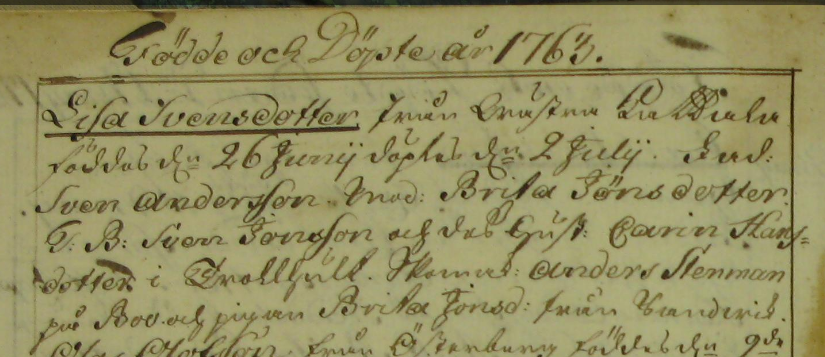 Födde och Döpte år 1763.
Lisa Svensdotter från
föddes dn 26 Junij döptes dn 2 Julij. Fad:
Sven Andersson. Mod: Brita Jönsdotter.
T: B: Sven Jonsson och des Hust: Carin Hans=
dotter i Trollhult. Anders Stenman
på Boo och pigan Brita Jonsd: från
från Österberg föddes dn 9de